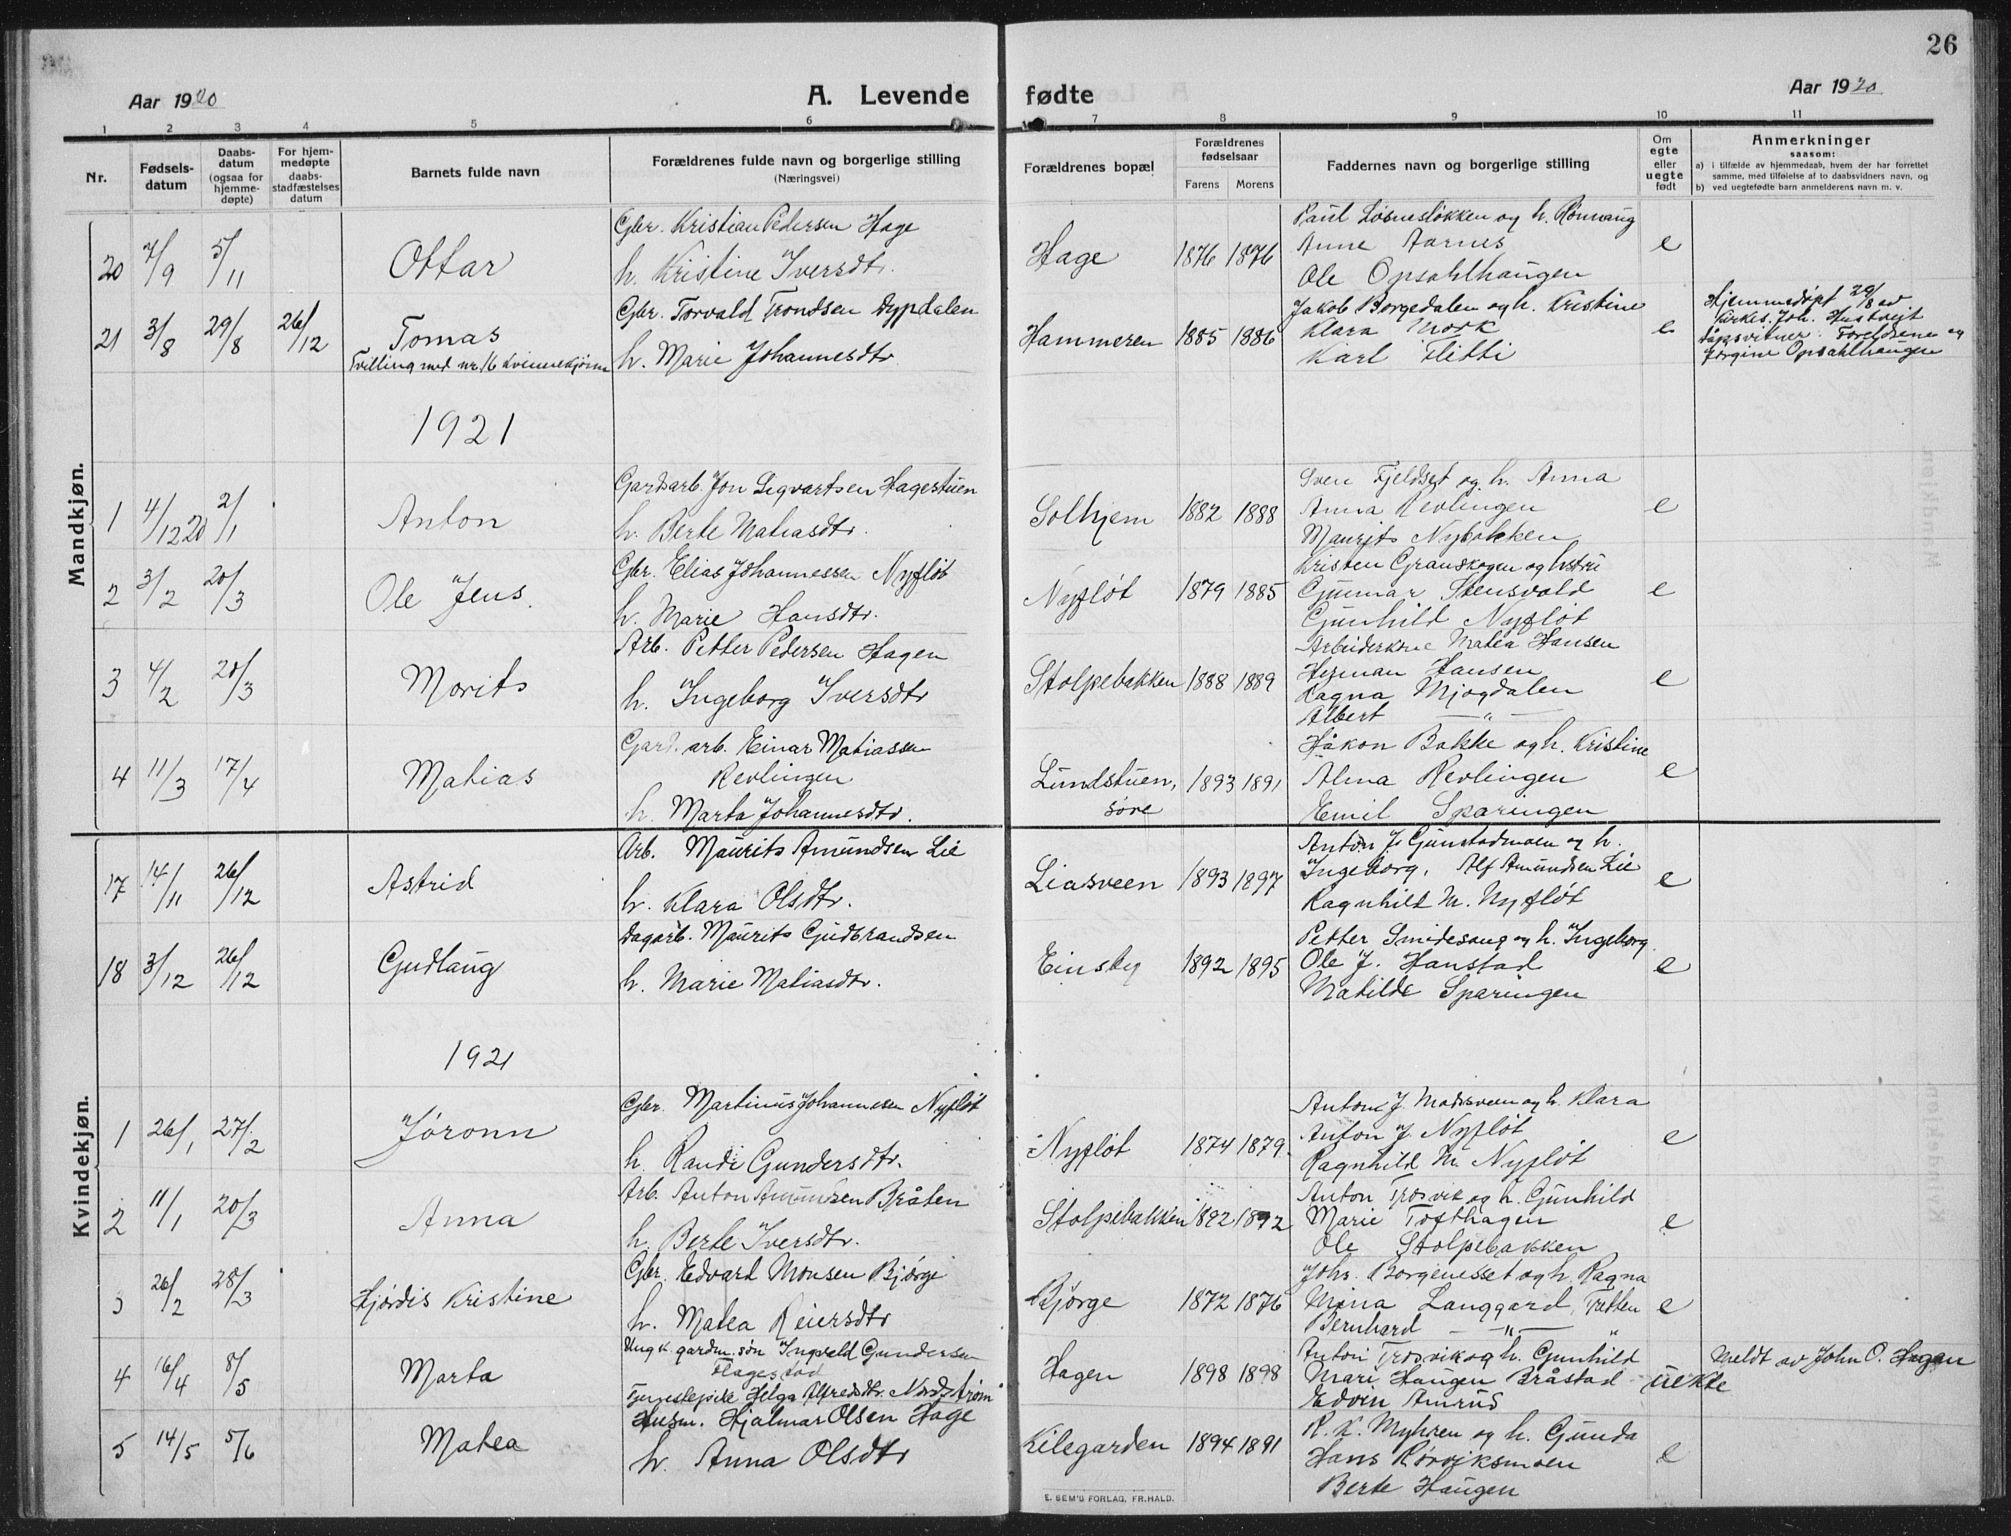 26
Aar 1920
A. Levende fødte
Aar 1920
1 2 3 4 5 6 7 8 9 10 11
Nr.
Fødsels-
datum
Daabs-
datum
(ogsaa for
hjemme-
døpte)
For hjem-
medøpte
daabs-
stadfæstelses
datum
Barnets fulde navn
Forældrenes fulde navn og borgerlige stilling
(Næringsvei)
Forældrenes bopæl
Forældrenes
fødselsaar
Farens Morens
Faddernes navn og borgerlige stilling
Om
egte
eller
uegte
født
Anmerkninger
saasom:
a) i tilfælde av hjemmedaab, hvem der har forrettet
samme, med tilføielse af to daabsvidners navn, og
b) ved uegtefødte barn anmelderens navn m. v.
Mandkjøn.
20 7/9 5/11 Ottar
Gbr. Kristian Pedersen Hage
h. Kristine Iversdtr.
Hage 1876 1876
Paul Løsnesløkken og h. Rønnaug
Anne Aarnes
Ole Opsahlhaugen
e
21 3/8 29/8 26/12 Tomas
Tvilling med nr. 16 kvinnekjønn
Gbr. Torvald Trondsen Dypdalen
h. Marie Johannesdtr
Hammeren 1885 1886
Jakob Borgedalen og h. Kristine
Klara Mork
Karl Flitti
e
Hjemmedøpt 29/8 av
Kirkes. Joh. Hustveit
dåpsvitner: Foreldrene og
Jørgine Opsahlhaugen
1921
1 4/12 20 2/1 Anton
Gardsarb. Jon Sigvartsen Hagestuen
h. Berte Matiasdtr.
Solhjem 1882 1888
Sven Fjeldset og h. Anna
Anna Revlingen
Maurits Nybakken
e
2 3/2 20/3 Ole Jens.
Gbr. Elias Johannessen Nyfløt
h. Marie Hansdtr.
Nyfløt 1879 1885
Kristen Granskogen og hstru
Gunnar Stensvold
Gunhild Nyfløt
e
3 4/2 20/3 Morits
Arb. Petter Pedersen Hagen
h. Ingeborg Iversdtr
Stolpebakken 1888 1889
Arbeiderkone Matea Hansen
Herman Hansen
Ragna Mjogdalen
Albert —"—
e
4 11/3 17/4 Matias
Gard. arb. Einar Matiassen
Revlingen
h. Marta Johannesdtr.
Lundstuen,
søre
1893 1891
Håkon Bakke og h. Kristine
Alma Revlingen
Emil Sparingen
e
Kvindekjøn.
17 14/11 26/12 Astrid
Arb. Maurits Amundsen Lie
h. Klara Olsdtr.
Liasveen 1893 1897
Anton J. Gunstadmoen og h.
Ingeborg, Alf Amundsen Lie
Ragnhild M. Nyfløt
e
18 3/12 26/12 Gudlaug
Dagarb. Maurits Gudbrandsen
h. Marie Matiasdtr.
Einsby 1892 1895
Petter Smidesang og h. Ingeborg.
Ole J. Hanstad
Matilde Sparingen
e
1921
1 26/1 27/2 Jøronn
Gbr. Martinus Johannesen Nyfløt
h. Randi Gundersdtr.
Nyfløt 1874 1879
Anton J. Madsveen og h. Klara
Anton J. Nyfløt
Ragnhild M. Nyfløt
e
2 11/1 20/3 Anna
Arb. Anton Amundsen Bråten
h. Berte Iversdtr.
Stolpebakken 1892 1892
Anton Trosvik og h. Gunhild
Marie Tofthagen
Ole Stolpebakken
e
3 26/2 28/3 Hjørdis Kristine
Gbr. Edvard Monsen Bjørge
h. Matea Reiersdtr
Bjørge 1872 1876
Johs. Borgenesset og h. Ragna
Mina Langgard, Tretten
Bernhard —"— "
e
4 16/4 8/5 Marta
Ungk. gardm. søn Ingvald Gundersen
Flagestad
Tjenestepike Helga Alfredsdtr. Nordstrøm
Hagen 1898 1898
Anton Trosvik og h. Gunhild
Mari Haugen Bråstad
Edvin Amrud
uekte
Meldt av John O. Hagen
5 14/5 5/6 Matea
Husm. Hjalmar Olsen Hage
h. Anna Olsdtr
Kilegarden 1894 1891
R. K. Myhren og h. Gunda
Hans Rørviksmoen
Berte Haugen
e
E. SEM'S FORLAG, FR.HALD.